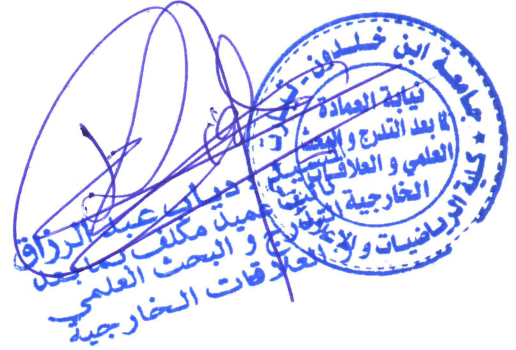 جامعة ابن خلدون - تيارت
كلية الرياضيات و الإعلام
نيابة العمادة
لما بعد التدرج و البحث
العلمي و العلاقات
الخارجية
عبد الرزاق
عميد مكلف بما بعد
و البحث العلمي
العلاقات الخارجية